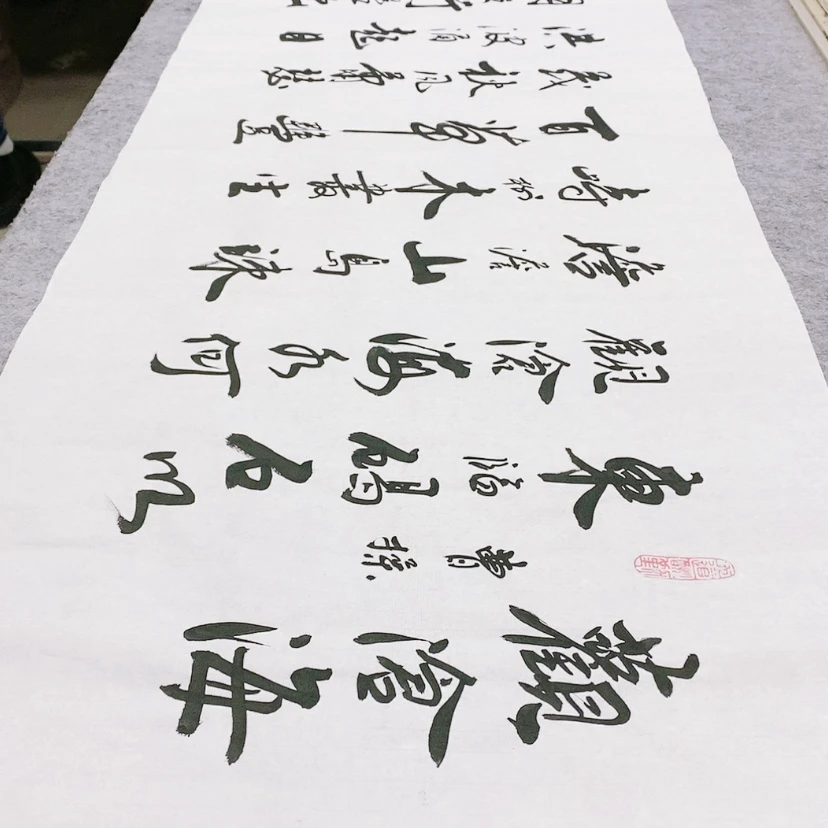 觀滄海
曹操
東臨碣石以
觀滄海水何
澹澹山島竦
峙樹木叢生
百草豐
茂秋風蕭瑟
洪波涌起日